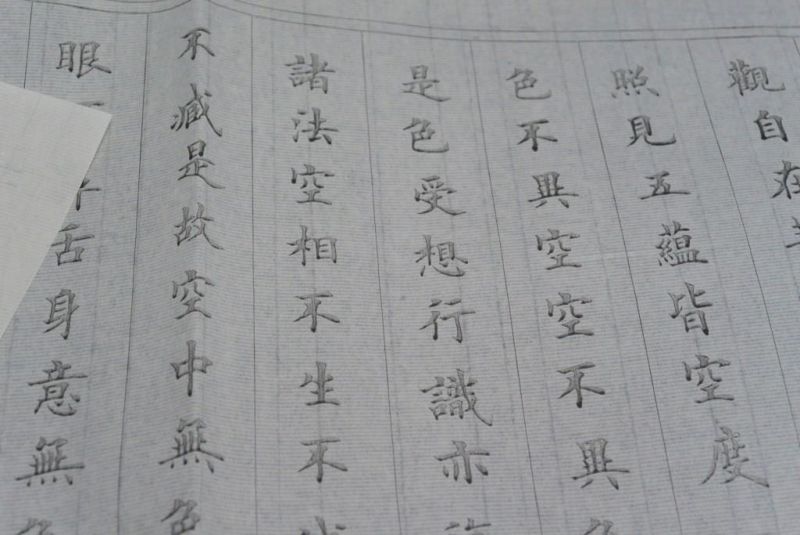 觀自在
照見五蘊皆空度
色不異空空不異色
是色受想行識亦
諸法空相不生不
不減是故空中無色
眼舌身意無色